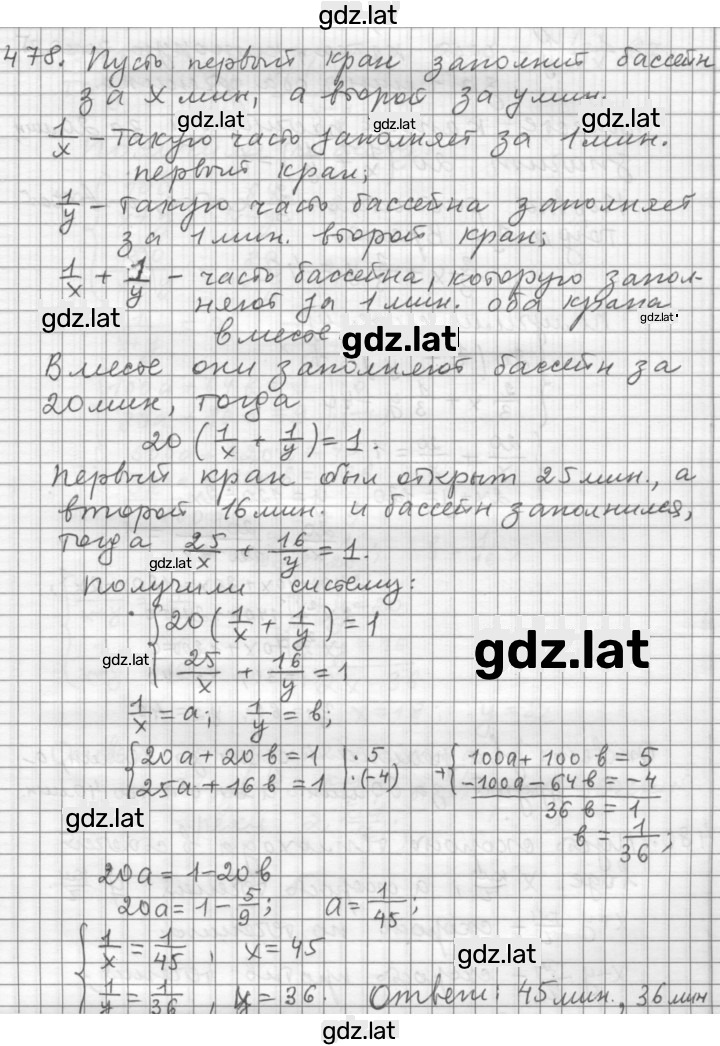 gdz.lat
478. Пусть первый кран заполнит бассейн
за x мин, а второй за y мин.
gdz.lat gdz.lat gdz.lat
1/x – такую часть заполняет за 1 мин.
первый кран;
1/y – такую часть бассейна заполняет
за 1 мин. второй кран;
1/x + 1/y – часть бассейна, которую запол-
няют за 1 мин. оба крана
gdz.lat gdz.lat
вместе gdz.lat
Вместе они заполняют бассейн за
20 мин, тогда
20 (1/x + 1/y) = 1.
Первый кран был открыт 25 мин., а
второй 16 мин. и бассейн заполнился,
тогда 25/x + 16/y = 1.
gdz.lat
Получили систему:
{ 20 (1/x + 1/y) = 1
gdz.lat gdz.lat
25/x + 16/y = 1
1/x = a; 1/y = b;
{ 20a + 20b = 1 | · 5
25a + 16b = 1 | · (-4)
+ { 100a + 100b = 5
-100a - 64b = -4
36b = 1
b = 1/36;
gdz.lat
20a = 1 - 20b
20a = 1 - 5/9; a = 1/45;
{ 1/x = 1/45, x = 45
gdz.lat
1/y = 1/36, y = 36. Ответ: 45 мин., 36 мин
gdz.lat